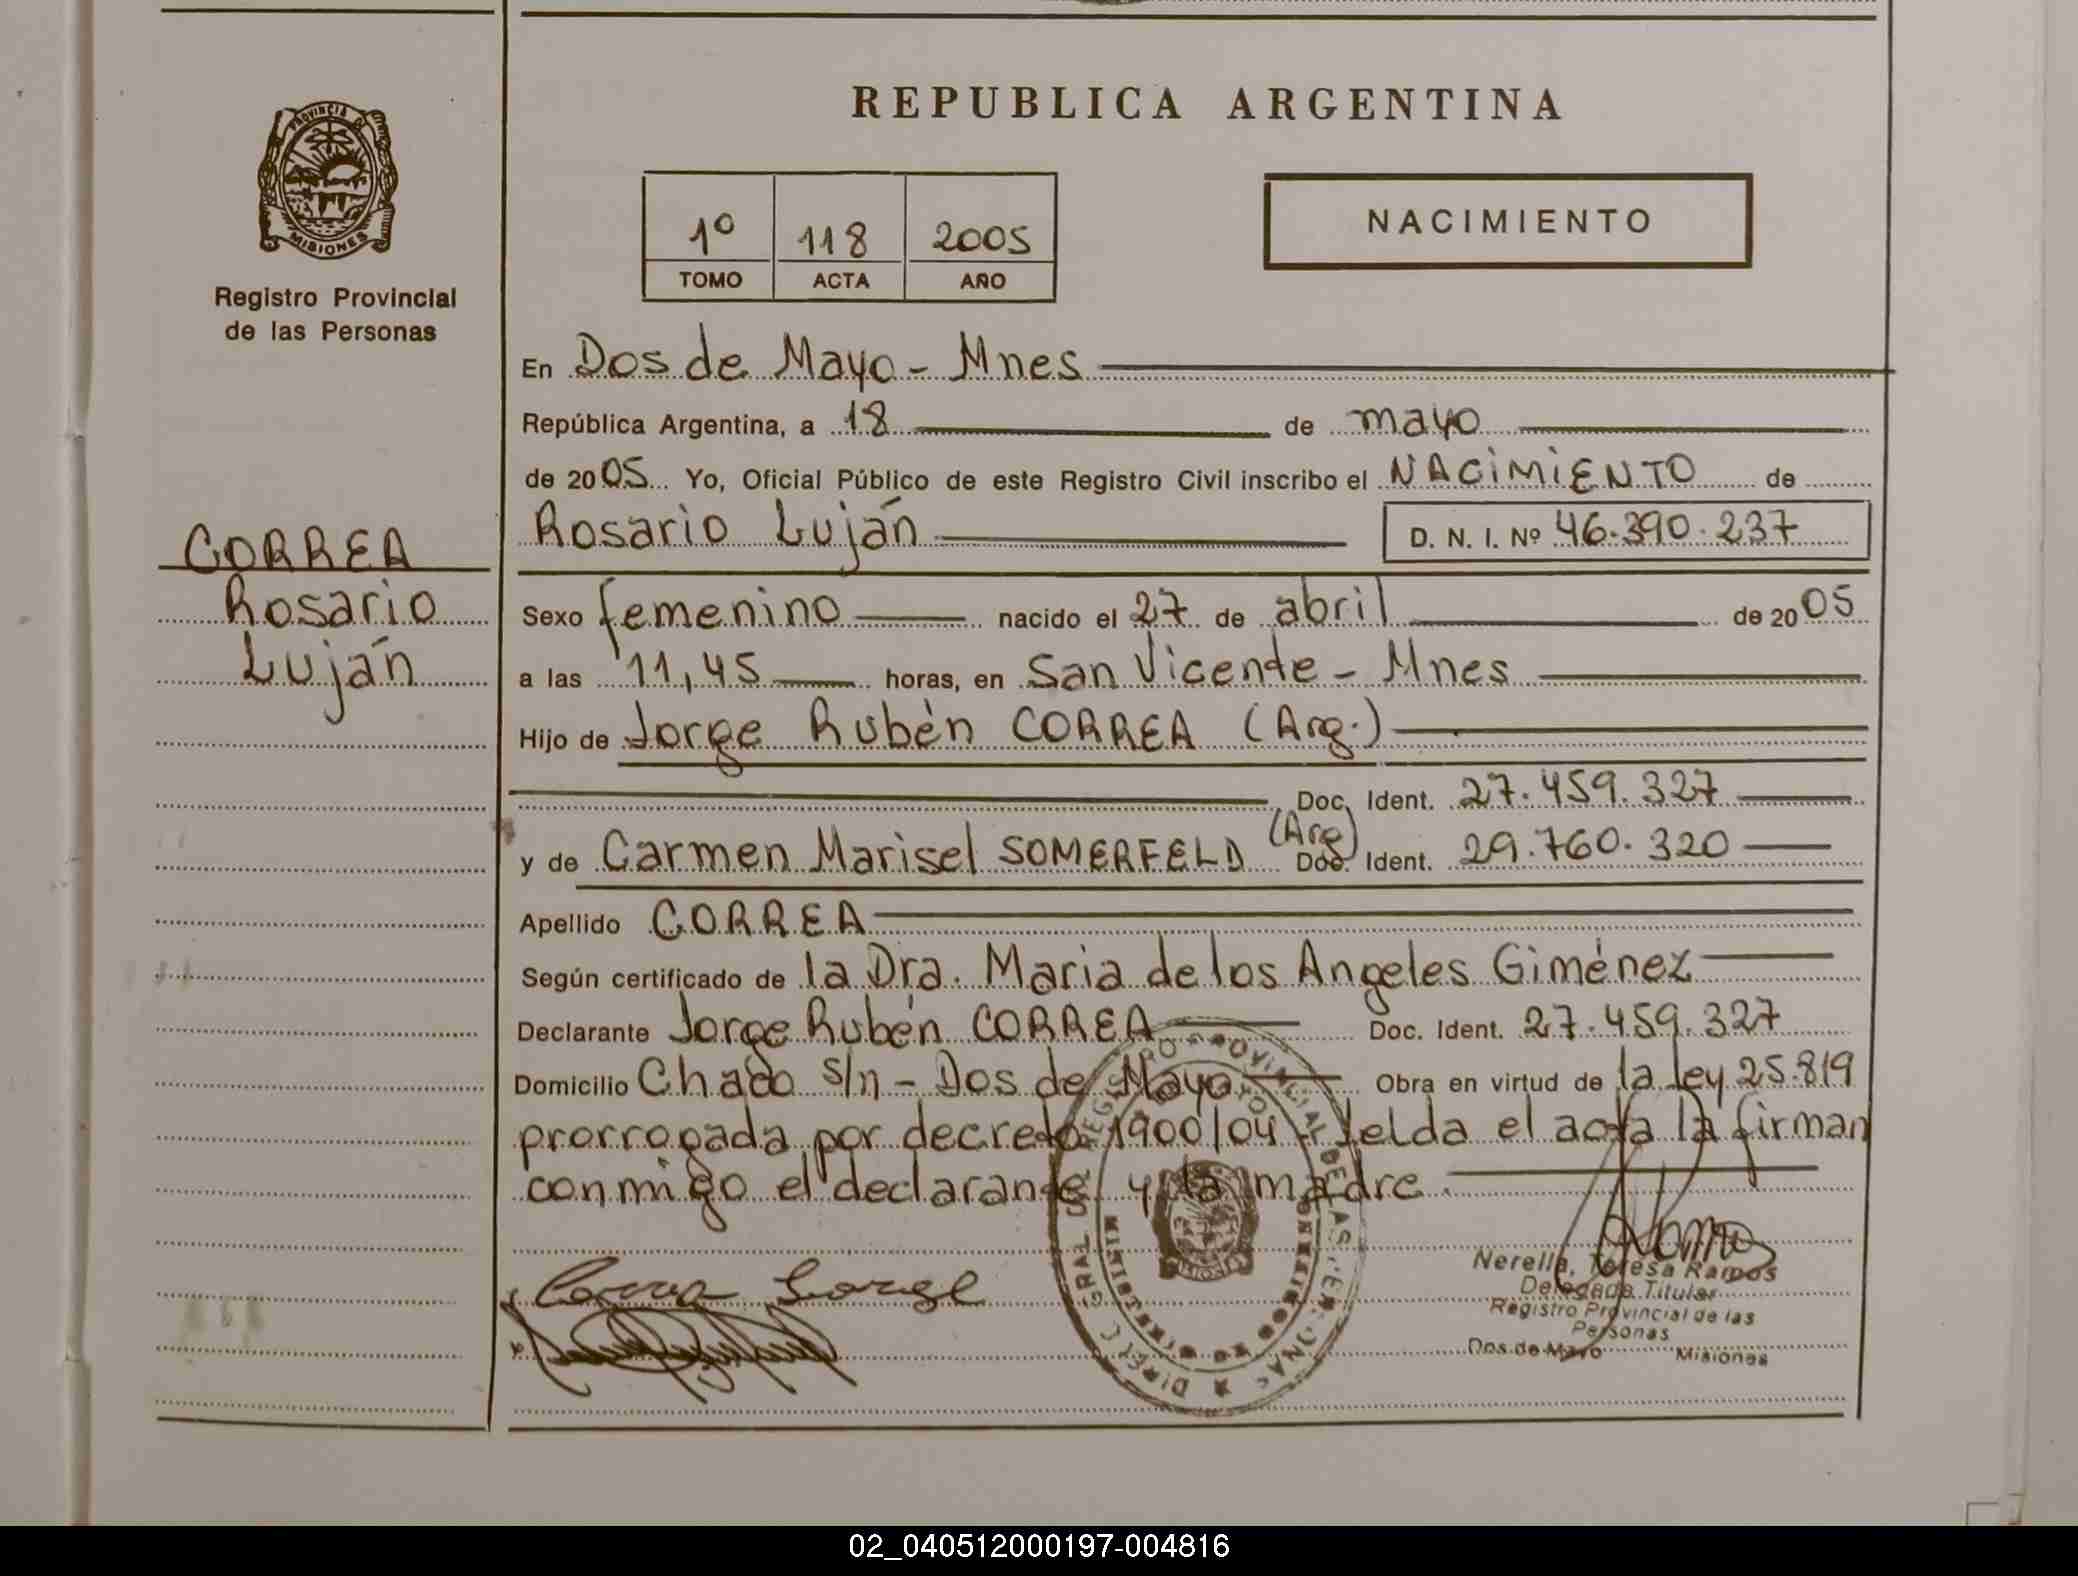 REPUBLICA ARGENTINA
PROVINCIA DE
MISIONES
Registro Provincial
de las Personas
1º 118 2005
TOMO ACTA AÑO
NACIMIENTO
En Dos de Mayo - Mnes
República Argentina, a 18 de mayo
de 2005 Yo, Oficial Público de este Registro Civil inscribo el NACIMIENTO de
Rosario Luján D. N. I. Nº 46.390.237
CORREA
Rosario
Luján
Sexo femenino nacido el 27 de abril de 2005
a las 11,45 horas, en San Vicente - Mnes
Hijo de Jorge Rubén CORREA (Arg.)
Doc. Ident. 27.459.327
y de Carmen Marisel SOMERFELD (Arg) Doc. Ident. 29.760.320
Apellido CORREA
Según certificado de la Dra. Maria de los Angeles Giménez
Declarante Jorge Rubén CORREA Doc. Ident. 27.459.327
Domicilio s/n - Dos de Mayo Obra en virtud de la ley 25.819
prorrogada por decreto 1900/04 - leida el acta la firman
conmigo el declarante y la madre.
Correa Jorge
Nerella, Teresa Ramos
Delegada Titular
Registro Provincial de las
Personas
Dos de Mayo Misiones
02_040512000197-004816